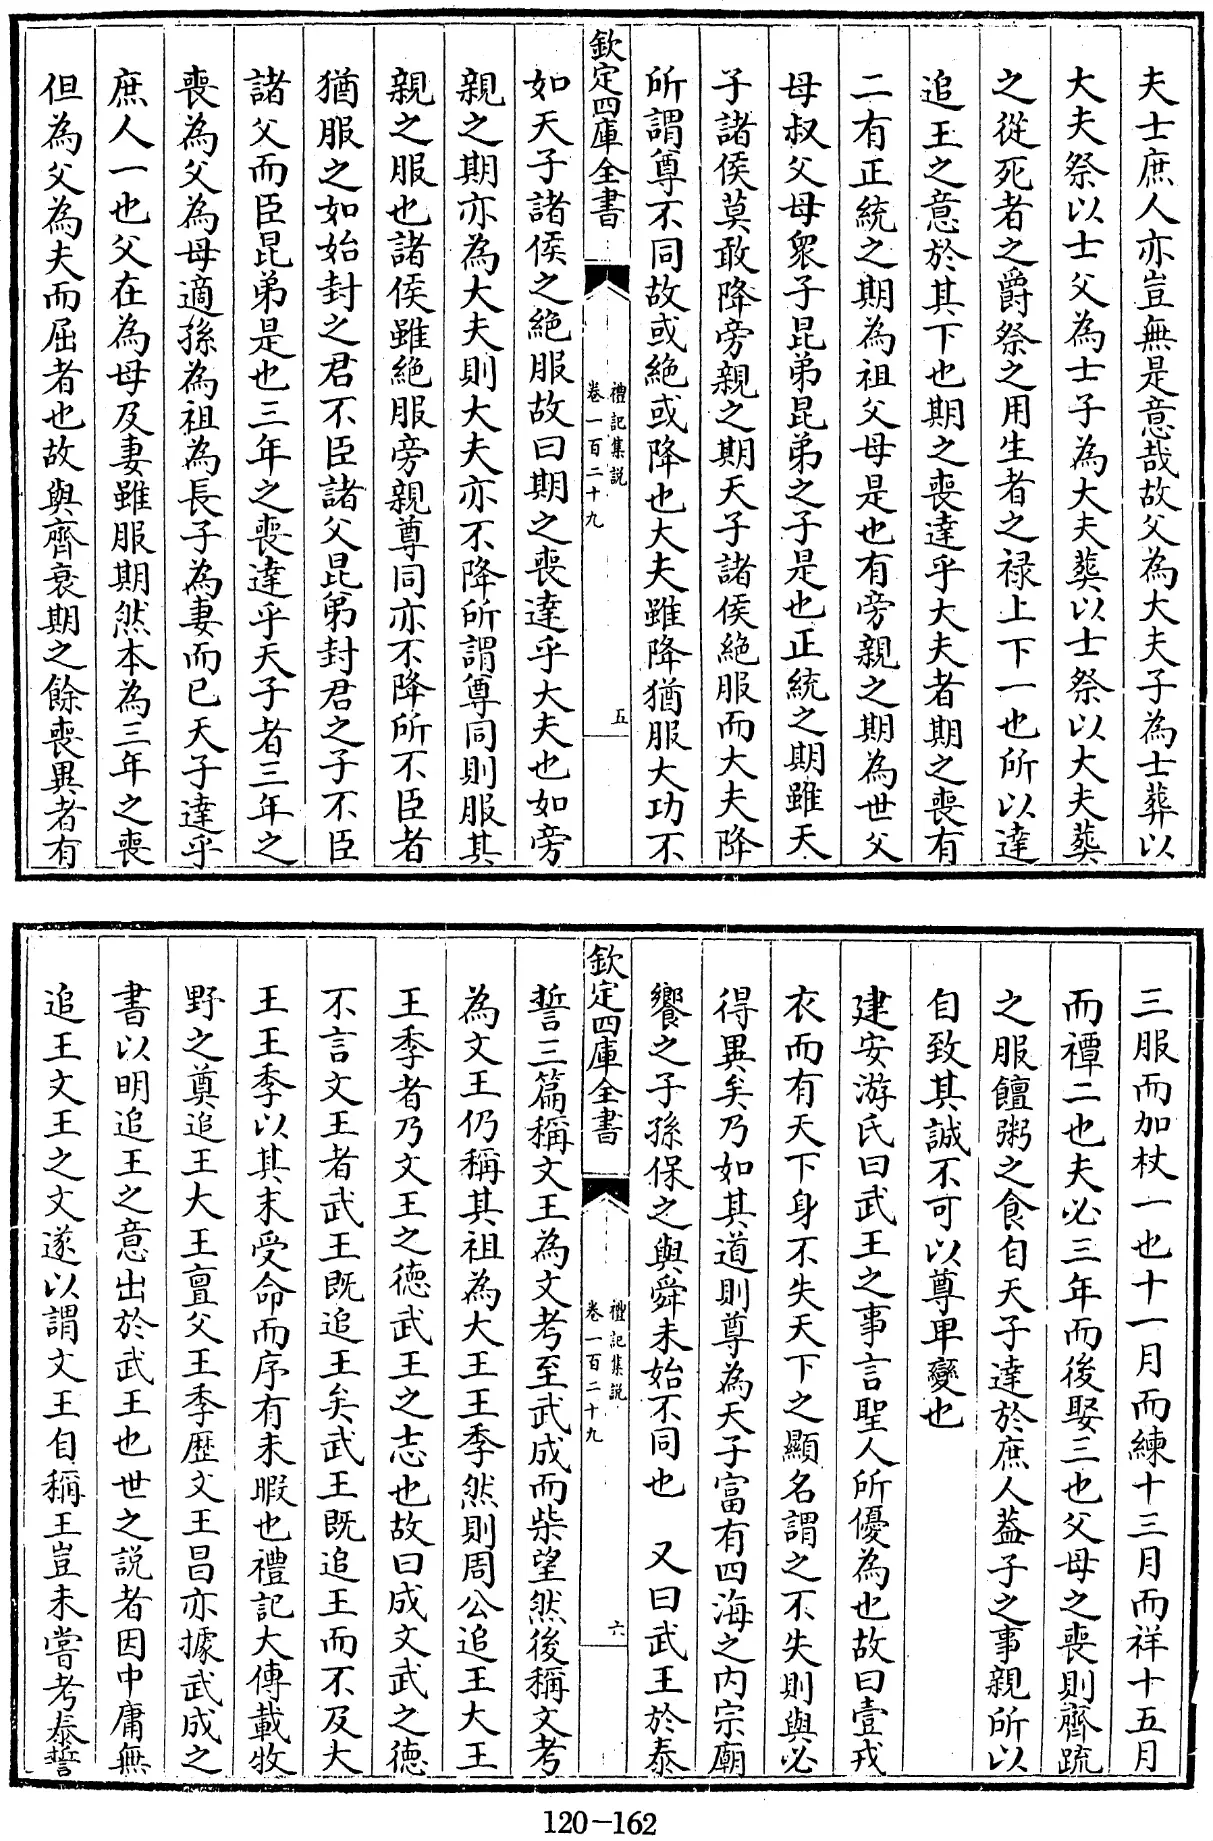 夫士庶人亦豈無是意哉故父為大夫子為士葬以
大夫祭以士父為士子為大夫葬以士祭以大夫葬
之從死者之爵祭之用生者之禄上下一也所以達
追王之意於其下也期之喪達乎大夫者期之喪有
二有正統之期為祖父母是也有旁親之期為世父
母叔父母衆子昆弟昆弟之子是也正統之期雖天
子諸侯莫敢降旁親之期天子諸侯絶服而大夫降
所謂尊不同故或絶或降也大夫雖降猶服大功不
欽定四庫全書
禮記集説
卷一百二十九
五
如天子諸侯之絶服故曰期之喪達乎大夫也如旁
親之期亦為大夫則大夫亦不降所謂尊同則服其
親之服也諸侯雖絶服旁親尊同亦不降所不臣者
猶服之如始封之君不臣諸父昆弟封君之子不臣
諸父而臣昆弟是也三年之喪達乎天子者三年之
喪為父為母適孫為祖為長子為妻而已天子達乎
庶人一也父在為母及妻雖服期然本為三年之喪
但為父為夫而屈者也故與齊衰期之餘喪異者有
三服而加杖一也十一月而練十三月而祥十五月
而禫二也夫必三年而後娶三也父母之喪則齊疏
之服饘粥之食自天子達於庶人葢子之事親所以
自致其誠不可以尊卑變也
建安游氏曰武王之事言聖人所優為也故曰壹戎
衣而有天下身不失天下之顯名謂之不失則與必
得異矣乃如其道則尊為天子富有四海之内宗廟
饗之子孫保之與舜未始不同也　又曰武王於泰
欽定四庫全書
禮記集説
卷一百二十九
六
誓三篇稱文王為文考至武成而柴望然後稱文考
為文王仍稱其祖為大王王季然則周公追王大王
王季者乃文王之德武王之志也故曰成文武之德
不言文王者武王既追王矣武王既追王而不及大
王王季以其末受命而序有未暇也禮記大傳載牧
野之奠追王大王亶父王季歷文王昌亦據武成之
書以明追王之意出於武王也世之説者因中庸無
追王文王之文遂以謂文王自稱王豈未嘗考泰誓
120-162